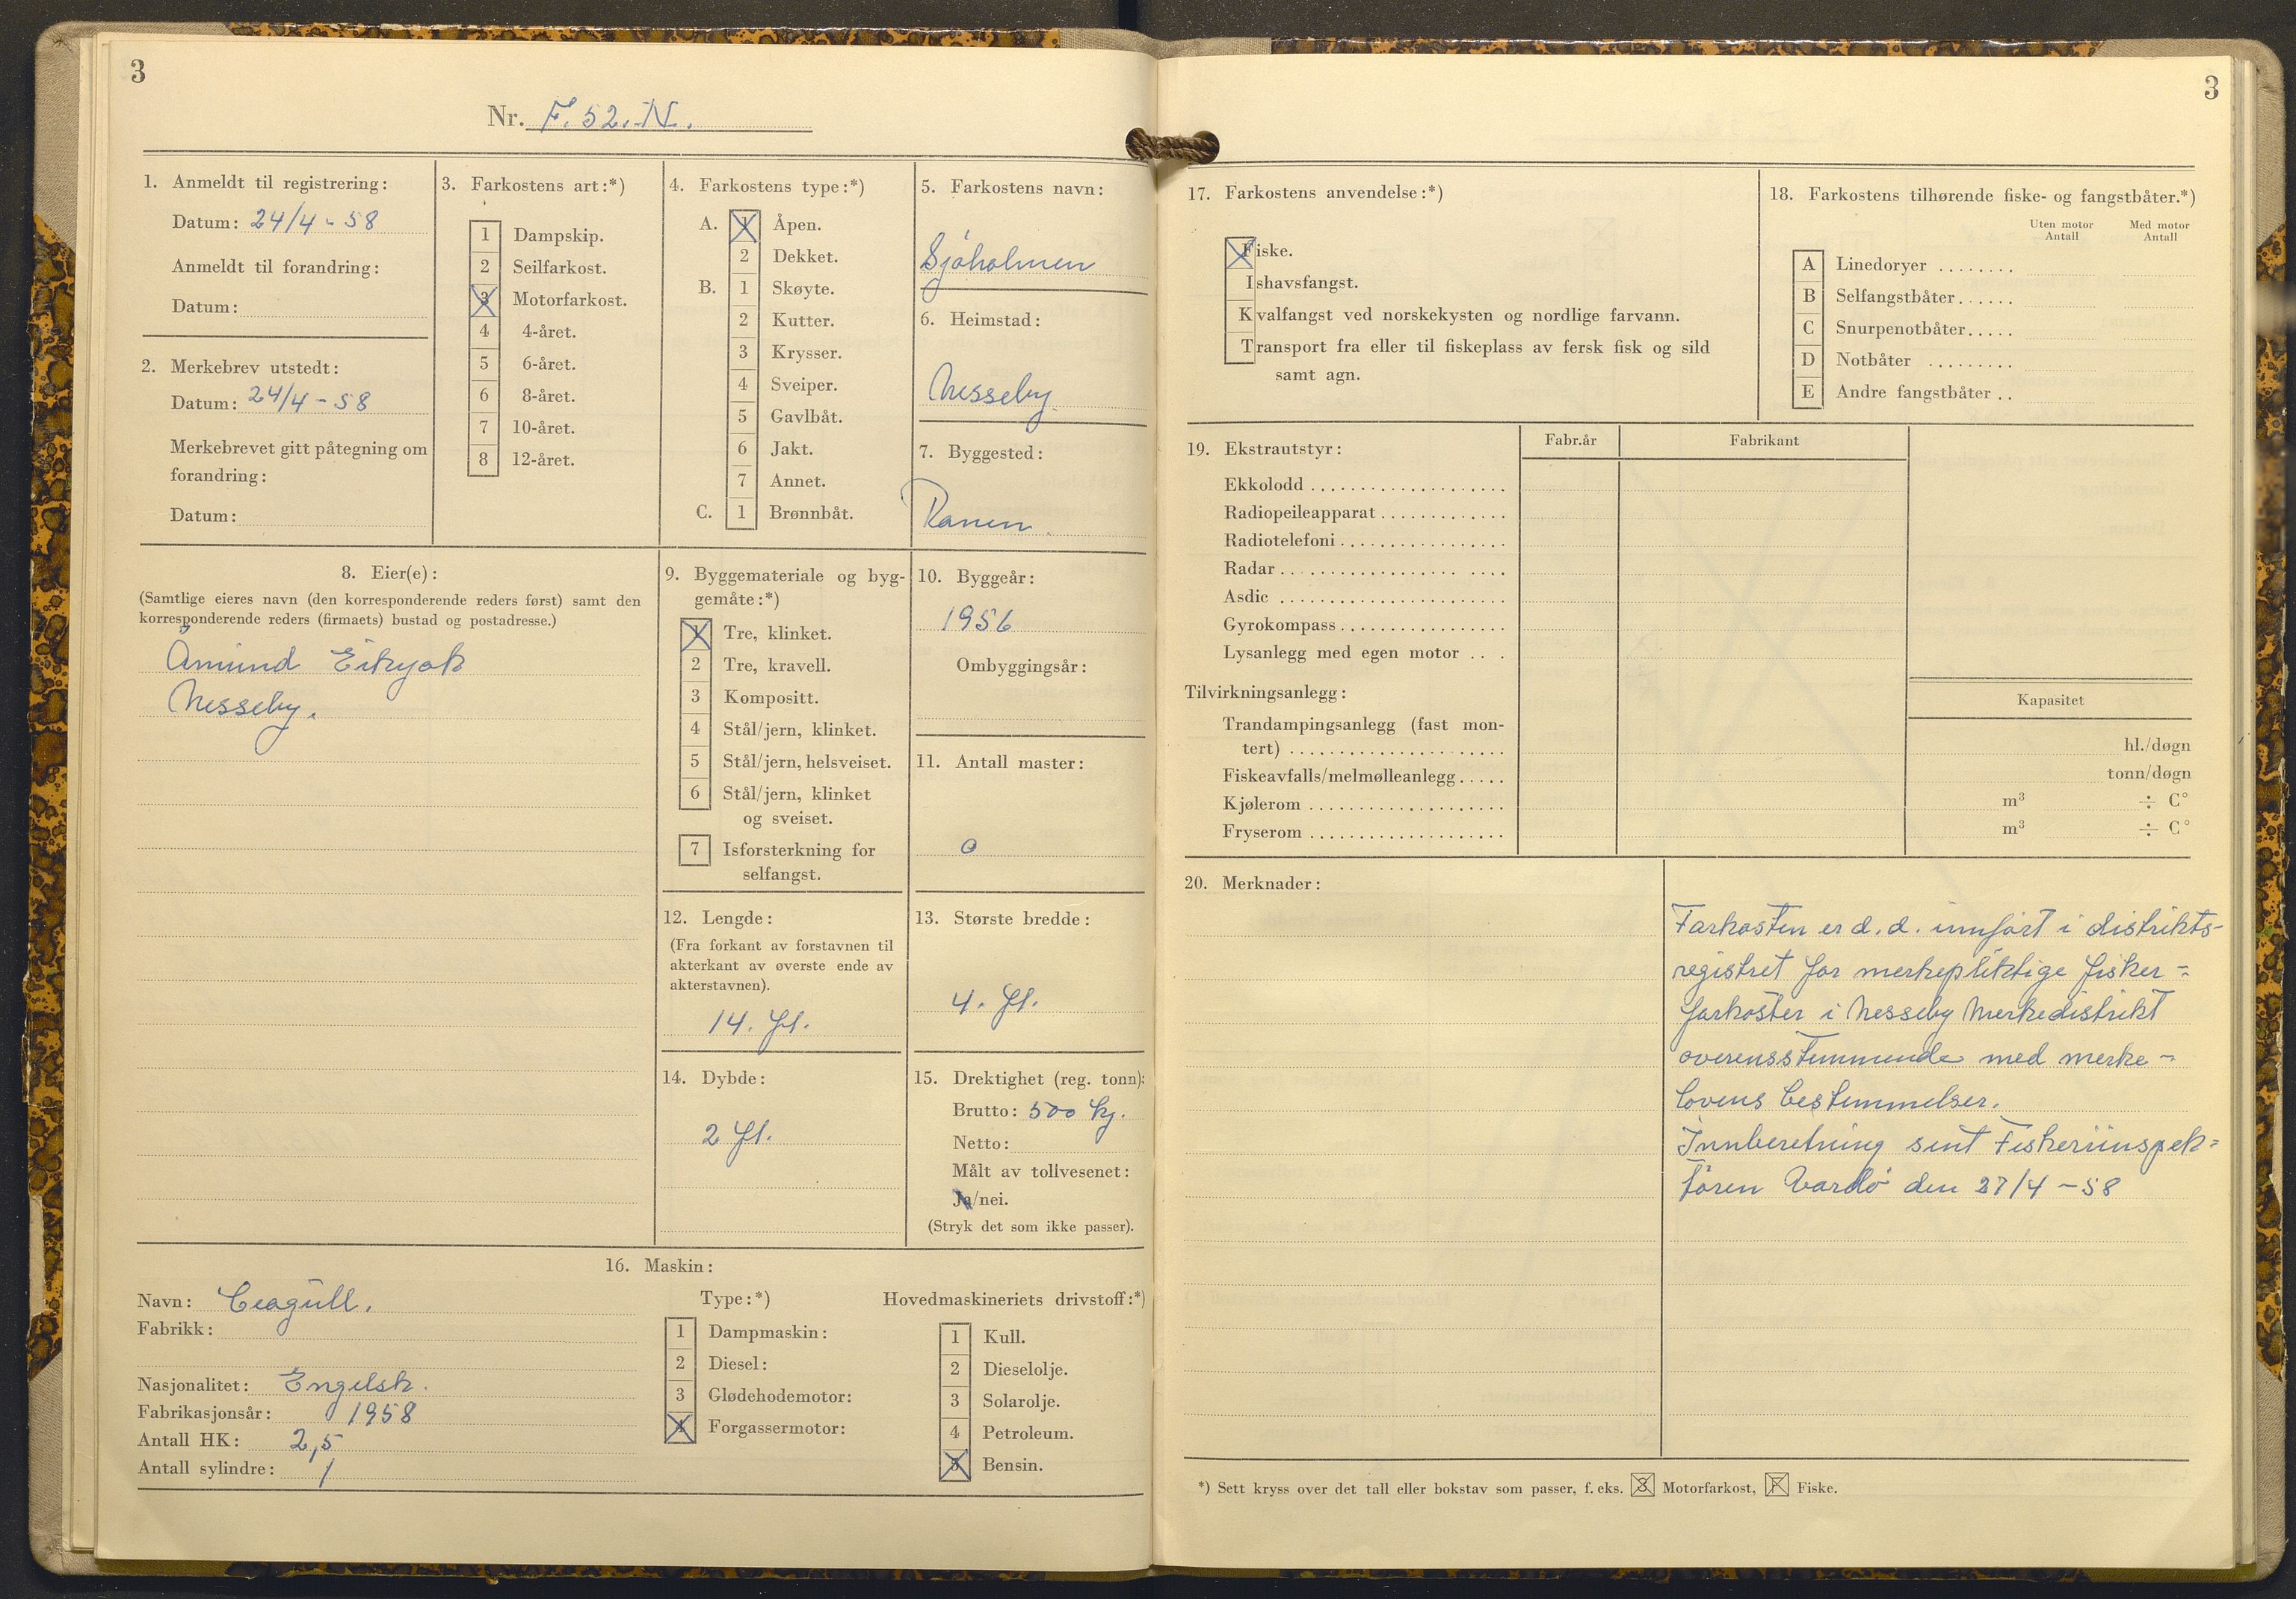 3
Nr. F. 52. N.
1. Anmeldt til registrering:
Datum: 24/4 - 58
Anmeldt til forandring:
Datum:
2. Merkebrev utstedt:
Datum: 24/4 - 58
Merkebrevet gitt påtegning om
forandring:
Datum:
3. Farkostens art:*)
1 Dampskip.
2 Seilfarkost.
3 Motorfarkost.
4 4-året.
5 6-året.
6 8-året.
7 10-året.
8 12-året.
4. Farkostens type:*)
A. 1 Åpen.
2 Dekket.
B. 1 Skøyte.
2 Kutter.
3 Krysser.
4 Sveiper.
5 Gavlbåt.
6 Jakt.
7 Annet.
C. 1 Brønnbåt.
5. Farkostens navn:
Sjøholmen
6. Heimstad:
Nesseby
7. Byggested:
Ranen
8. Eier(e):
(Samtlige eieres navn (den korresponderende reders først) samt den
korresponderende reders (firmaets) bustad og postadresse.)
Åmund Eikjok
Nesseby.
9. Byggemateriale og byg-
gemåte:*)
1 Tre, klinket.
2 Tre, kravell.
3 Kompositt.
4 Stål/jern, klinket.
5 Stål/jern, helsveiset.
6 Stål/jern, klinket
og sveiset.
7 Isforsterkning for
selfangst.
10. Byggeår:
1956
Ombyggingsår:
11. Antall master:
0
12. Lengde:
(Fra forkant av forstavnen til
akterkant av øverste ende av
akterstavnen).
14. ft.
13. Største bredde:
4. ft.
14. Dybde:
2 ft.
15. Drektighet (reg. tonn):
Brutto: 500 kg.
Netto:
Målt av tollvesenet:
Ja/nei.
(Stryk det som ikke passer).
16. Maskin:
Navn: Ceagull.
Fabrikk:
Nasjonalitet: Engelsk.
Fabrikasjonsår: 1958
Antall HK: 2,5
Antall sylindre: 1
Type:*)
1 Dampmaskin:
2 Diesel:
3 Glødehodemotor:
4 Forgassermotor:
Hovedmaskineriets drivstoff:*)
1 Kull.
2 Dieselolje.
3 Solarolje.
4 Petroleum.
5 Bensin.
3
17. Farkostens anvendelse:*)
Fiske.
Ishavsfangst.
Kvalfangst ved norskekysten og nordlige farvann.
Transport fra eller til fiskeplass av fersk fisk og sild
samt agn.
18. Farkostens tilhørende fiske- og fangstbåter.*)
Uten motor Med motor
Antall Antall
A Linedoryer ........
B Selfangstbåter......
C Snurpenotbåter.....
D Notbåter .........
E Andre fangstbåter ..
19. Ekstrautstyr:
Fabr.år Fabrikant
Ekkolodd ....................
Radiopeileapparat.............
Radiotelefoni.................
Radar.......................
Asdic .......................
Gyrokompass.................
Lysanlegg med egen motor .. .
Tilvirkningsanlegg:
Kapasitet
Trandampingsanlegg (fast mon-
tert) ...................... hl./døgn
Fiskeavfalls/melmølleanlegg..... tonn/døgn
Kjølerom .................... m³ ÷ C°
Fryserom .................... m³ ÷ C°
20. Merknader:
Farkosten er d. d. innført i distrikts-
registret for merkepliktige fisker-
farkoster i Nesseby Merkedistrikt
overensstemmende med merke-
lovens bestemmelser.
Innberetning sent Fiskeriinspek=
tøren Vardø den 27/4 - 58
*) Sett kryss over det tall eller bokstav som passer, f. eks. 3 Motorfarkost, F Fiske.